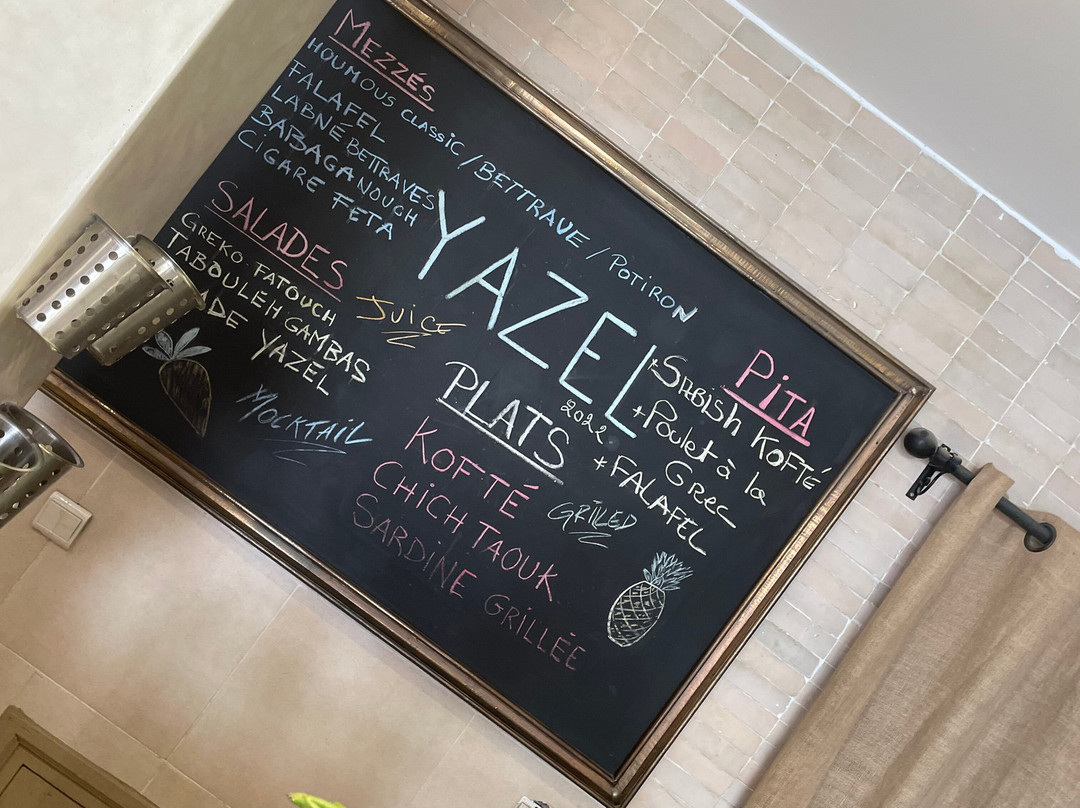 MEZZÉS
HOUMOUS CLASSIC / BETTRAVE / POTIRON
FALAFEL
LABNÉ BETTRAVES
BABAGANOUCH
CIGARE FETA
SALADES
GREKO FATOUCH
TABOULEH GAMBAS
YAZEL
JUICE
MOCKTAIL
YAZEL
2022
PLATS
KOFTÉ
CHICH TAOUK
SARDINE GRILLÉE
GRILLED
PITA
+SABISH KOFTÉ
+Poulet à la
Grec
+FALAFEL